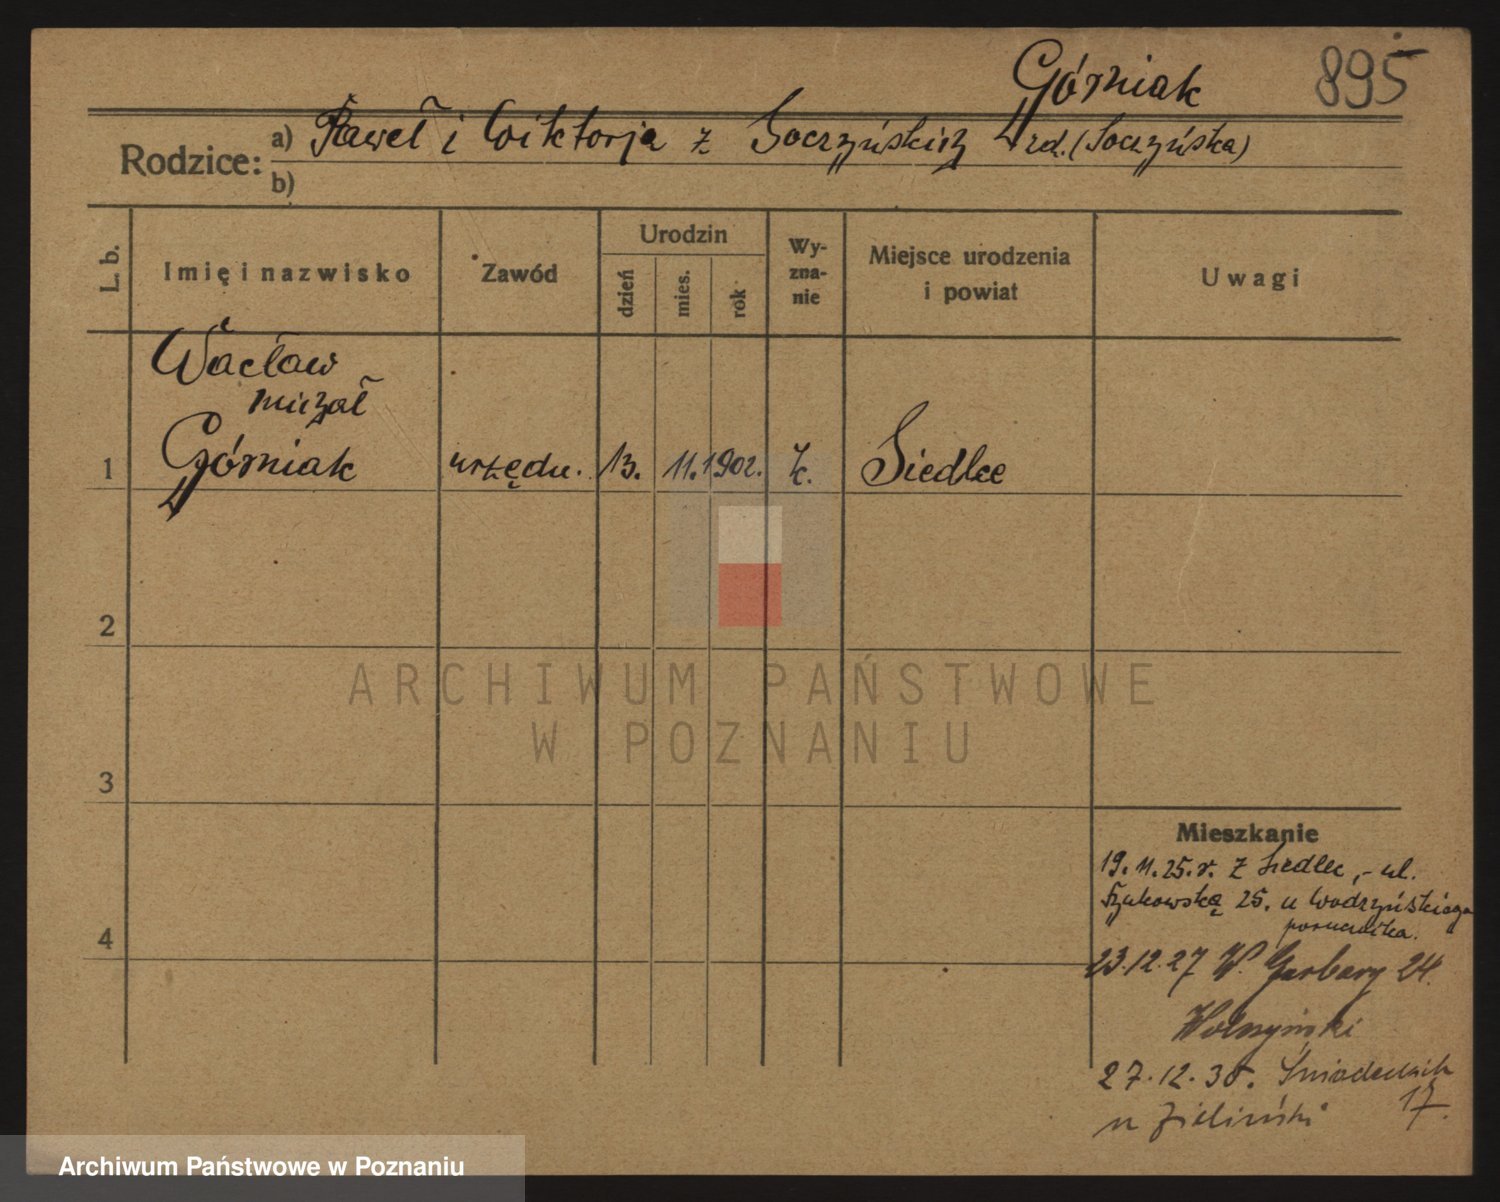 Górniak 895
Rodzice: a) Paweł i Wiktorja z Soczyńskich rd. (Soczyńska)
b)
L. b.
Imię i nazwisko
Zawód
Urodzin
dzień
mies.
rok
Wy-
zna-
nie
Miejsce urodzenia
i powiat
Uwagi
Wacław
Michał
1 Górniak urzędn. 13. 11. 1902. k. Siedlce
2
ARCHIWUM PAŃSTWOWE
W POZNANIU
3
Mieszkanie
19. 11. 25. r. z Siedlec, - ul.
25. u Wodzyńskiego
porucznika.
4
23.12.27 W. Garbary 24.
27.12.30. Śniadeckich
17.
u Zieliński
Archiwum Państwowe w Poznaniu